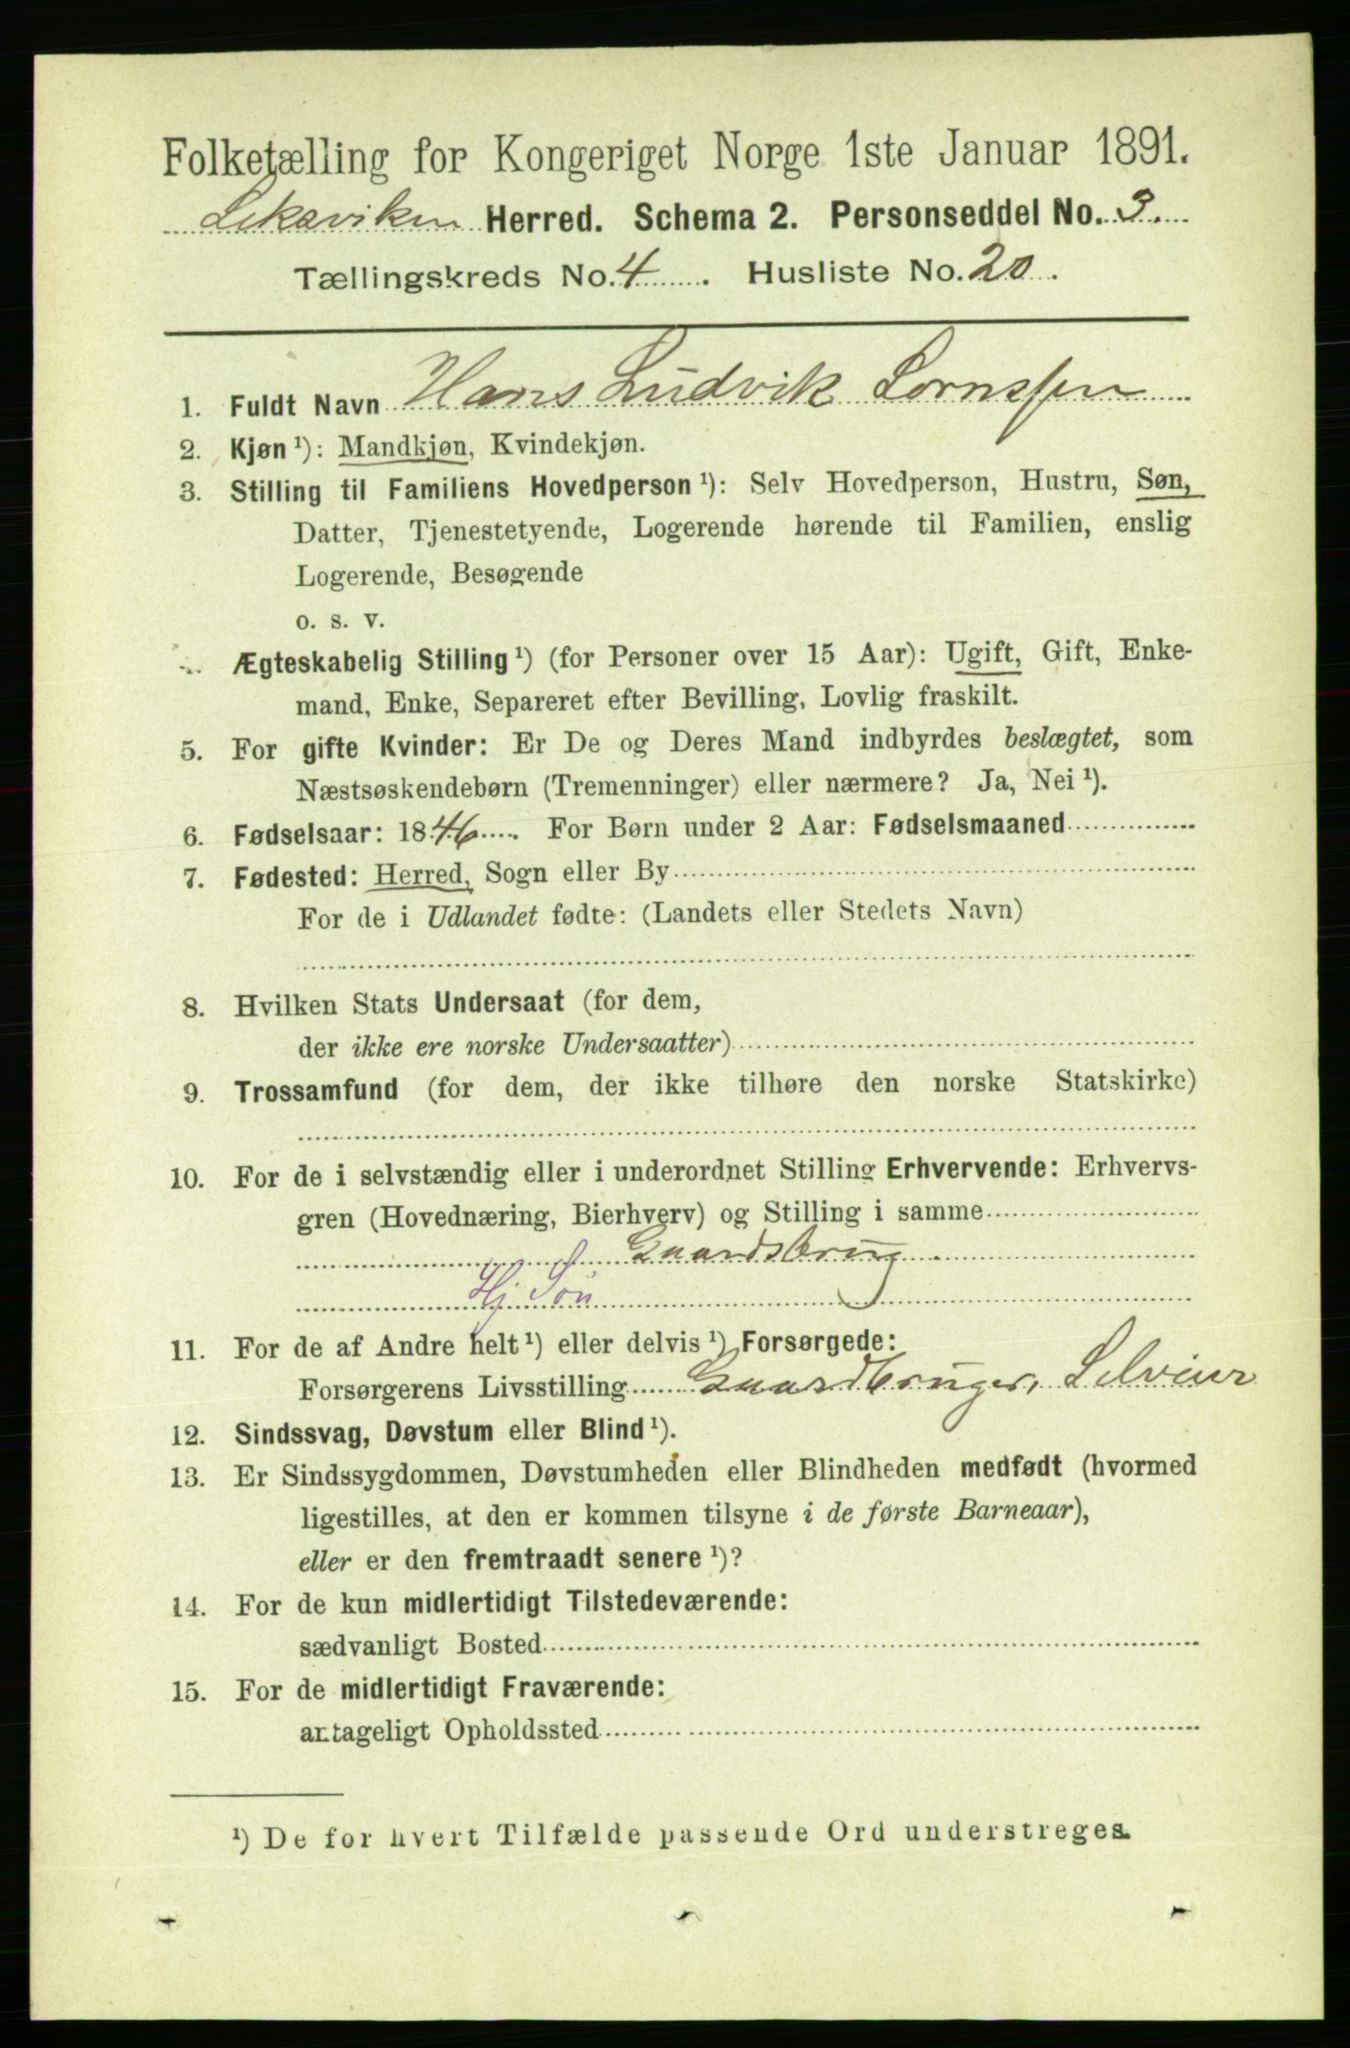 Folketælling for Kongeriget Norge 1ste Januar 1891.
Leksviken Herred. Schema 2. Personseddel No. 3.
Tællingskreds No. 4. Husliste No. 20.
1. Fuldt Navn Hans Ludvik Lornssen
2. Kjøn ¹): Mandkjøn, Kvindekjøn.
3. Stilling til Familiens Hovedperson ¹): Selv Hovedperson, Hustru, Søn,
Datter, Tjenestetyende, Logerende hørende til Familien, enslig
Logerende, Besøgende
o. s. v.
Ægteskabelig Stilling ¹) (for Personer over 15 Aar): Ugift, Gift, Enke-
mand, Enke, Separeret efter Bevilling, Lovlig fraskilt.
5. For gifte Kvinder: Er De og Deres Mand indbyrdes beslægtet, som
Næstsøskendebørn (Tremenninger) eller nærmere? Ja, Nei ¹).
6. Fødselsaar: 1846. For Børn under 2 Aar: Fødselsmaaned
7. Fødested: Herred, Sogn eller By
For de i Udlandet fødte: (Landets eller Stedets Navn)
8. Hvilken Stats Undersaat (for dem,
der ikke ere norske Undersaatter)
9. Trossamfund (for dem, der ikke tilhøre den norske Statskirke)
10. For de i selvstændig eller i underordnet Stilling Erhvervende: Erhvervs-
gren (Hovednæring, Bierhverv) og Stilling i samme
Gaardsbrug
Hj Søn
11. For de af Andre helt ¹) eller delvis ¹) Forsørgede:
Forsørgerens Livsstilling Gaardbruger, Selveier
12. Sindssvag, Døvstum eller Blind ¹).
13. Er Sindssygdommen, Døvstumheden eller Blindheden medfødt (hvormed
ligestilles, at den er kommen tilsyne i de første Barneaar),
eller er den fremtraadt senere ¹)?
14. For de kun midlertidigt Tilstedeværende:
sædvanligt Bosted
15. For de midlertidigt Fraværende:
antageligt Opholdssted
¹) De for hvert Tilfælde passende Ord understreges.